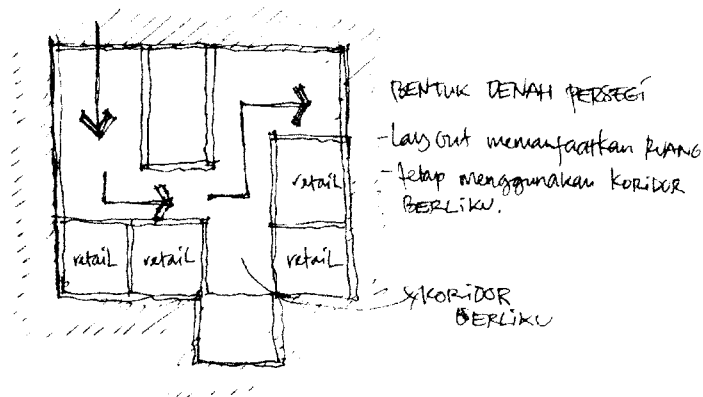 BENTUK DENAH PERSEGI
-Layout memanfaatkan RUANG
-tetap menggunakan KORIDOR
BERLIKU.
retail
retail
retail
retail
KORIDOR
BERLIKU